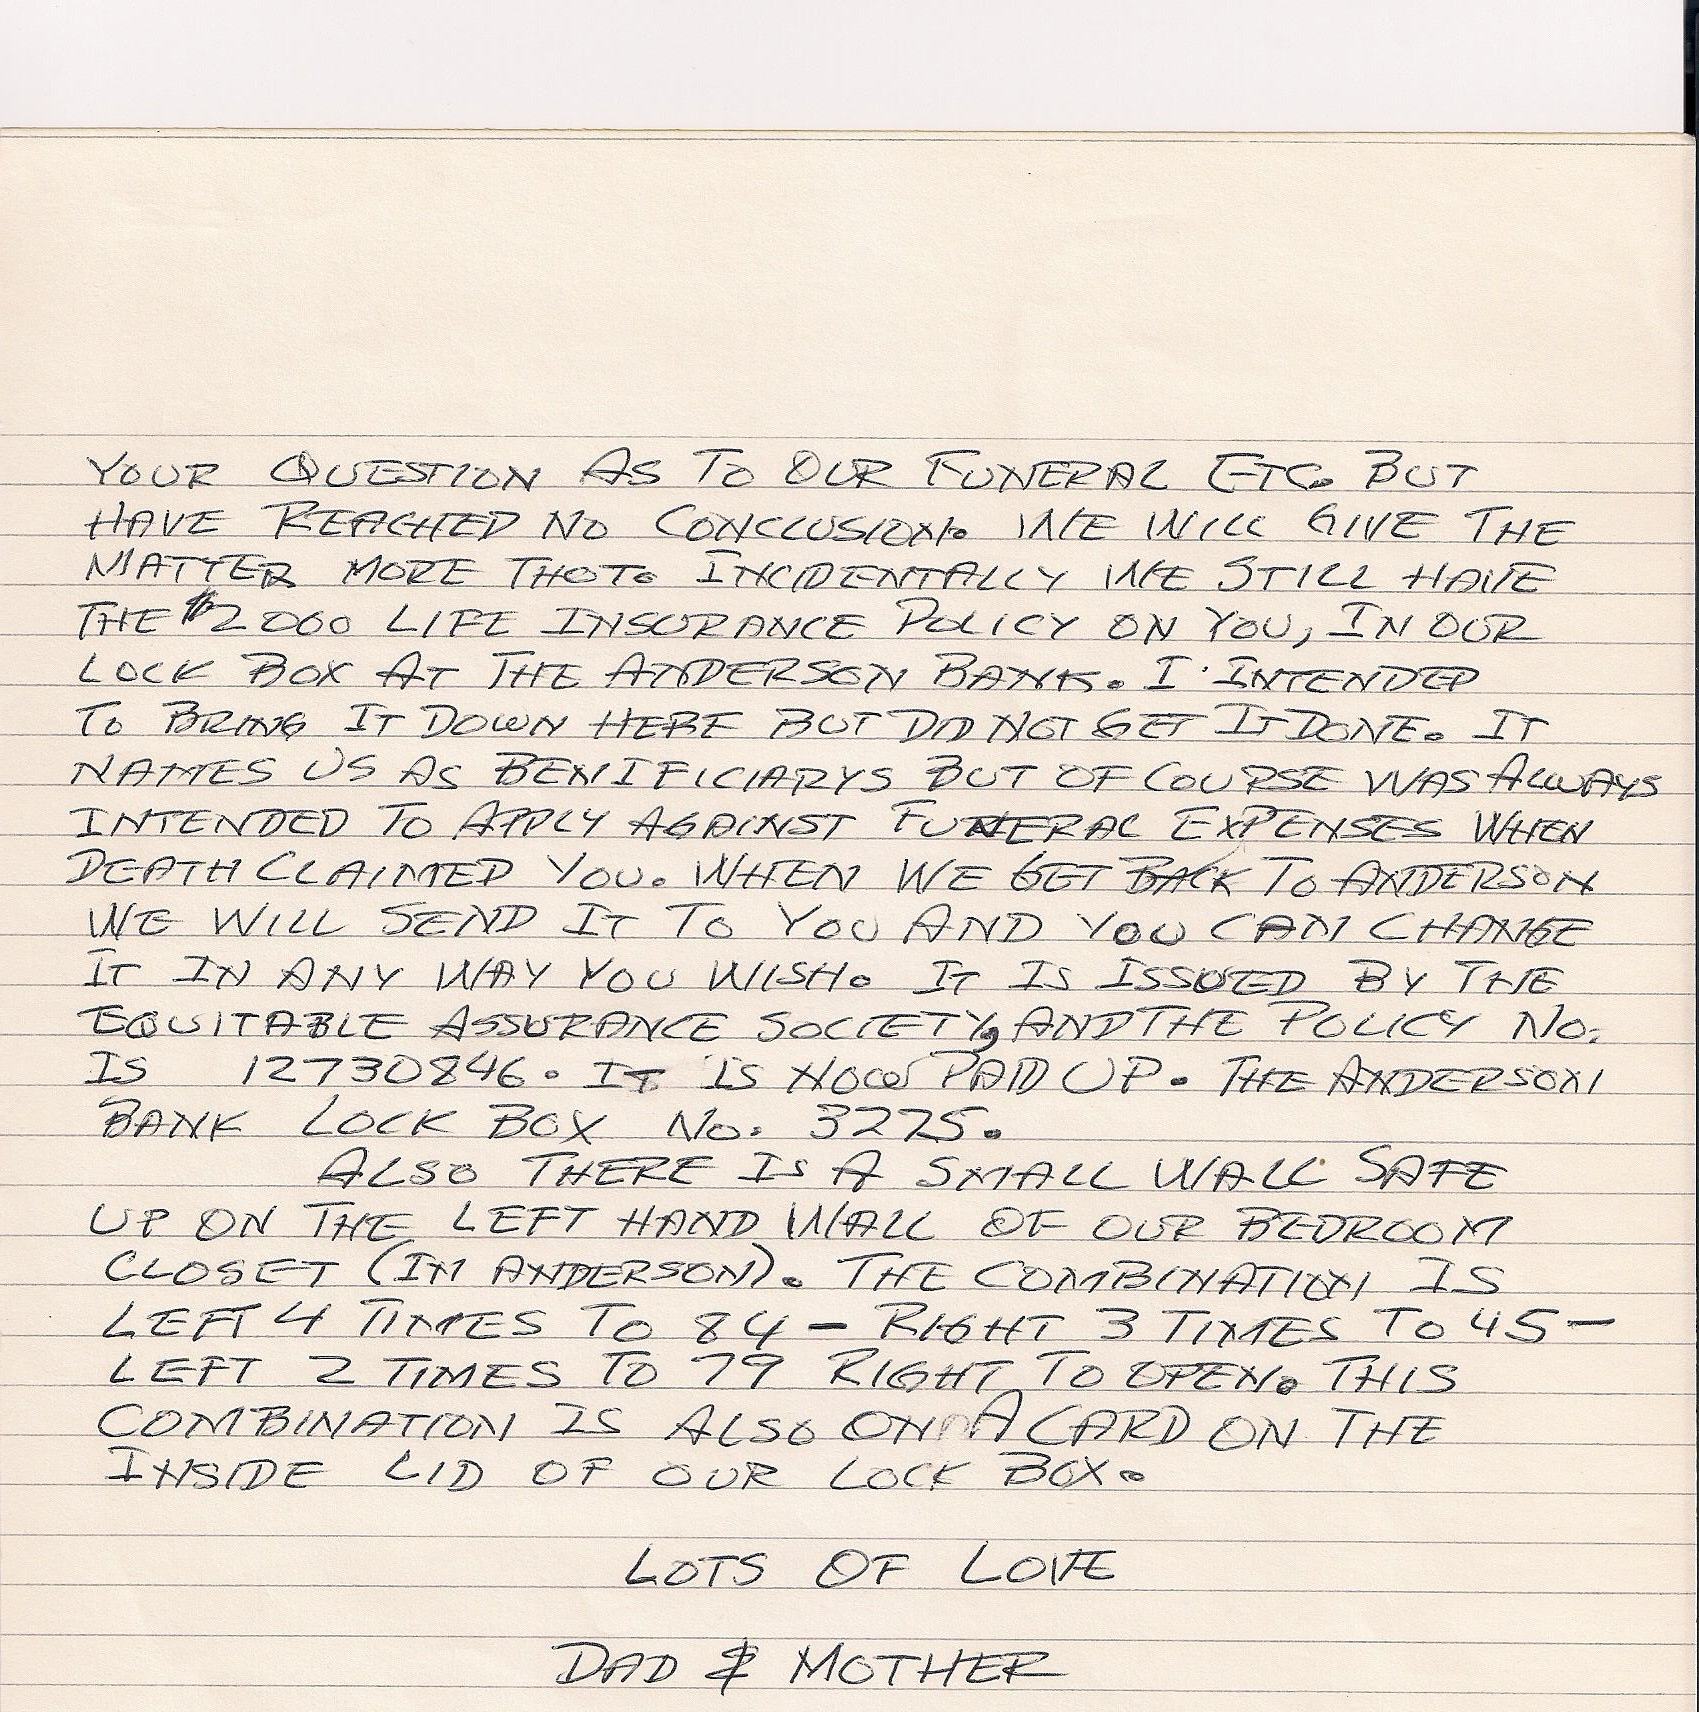 YOUR QUESTION AS TO OUR FUNERAL ETC. BUT
HAVE REACHED NO CONCLUSION. WE WILL GIVE THE
MATTER MORE THOT. INCIDENTALLY WE STILL HAVE
THE $2000 LIFE INSURANCE POLICY ON YOU, IN OUR
LOCK BOX AT THE ANDERSON BANK. I INTENDED
TO BRING IT DOWN HERE BUT DID NOT GET IT DONE. IT
NAMES US AS BENIFICIARYS BUT OF COURSE WAS ALWAYS
INTENDED TO APPLY AGAINST FUNERAL EXPENSES WHEN
DEATH CLAIMED YOU. WHEN WE GET BACK TO ANDERSON
WE WILL SEND IT TO YOU AND YOU CAN CHANGE
IT IN ANY WAY YOU WISH. IT IS ISSUED BY THE
EQUITABLE ASSURANCE SOCIETY, AND THE POLICY NO.
IS 12730846. IT IS NOW PAID UP. THE ANDERSON
BANK LOCK BOX NO. 3275.
ALSO THERE IS A SMALL WALL SAFE
UP ON THE LEFT HAND WALL OF OUR BEDROOM
CLOSET (IN ANDERSON). THE COMBINATION IS
LEFT 4 TIMES TO 84 - RIGHT 3 TIMES TO 45 -
LEFT 2 TIMES TO 79 RIGHT TO OPEN. THIS
COMBINATION IS ALSO ON A CARD ON THE
INSIDE LID OF OUR LOCK BOX.
LOTS OF LOVE
DAD & MOTHER